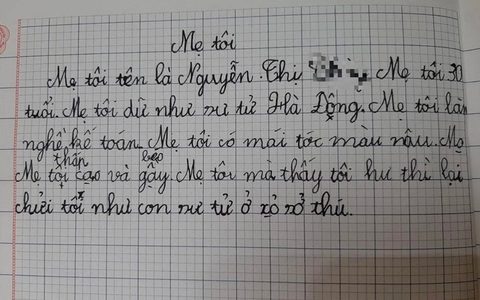 Mẹ tôi
Mẹ tôi tên là Nguyễn Thị Mẹ tôi 30
tuổi. Mẹ tôi dữ như sư tử Hà Đông. Mẹ tôi làm
nghề kế toán. Mẹ tôi có mái tóc màu nâu. Mẹ
thấp béo
Mẹ tôi cao và gầy. Mẹ tôi mà thấy tôi hư thì lại
chửi tôi như con sư tử ở xỏ sở thú.